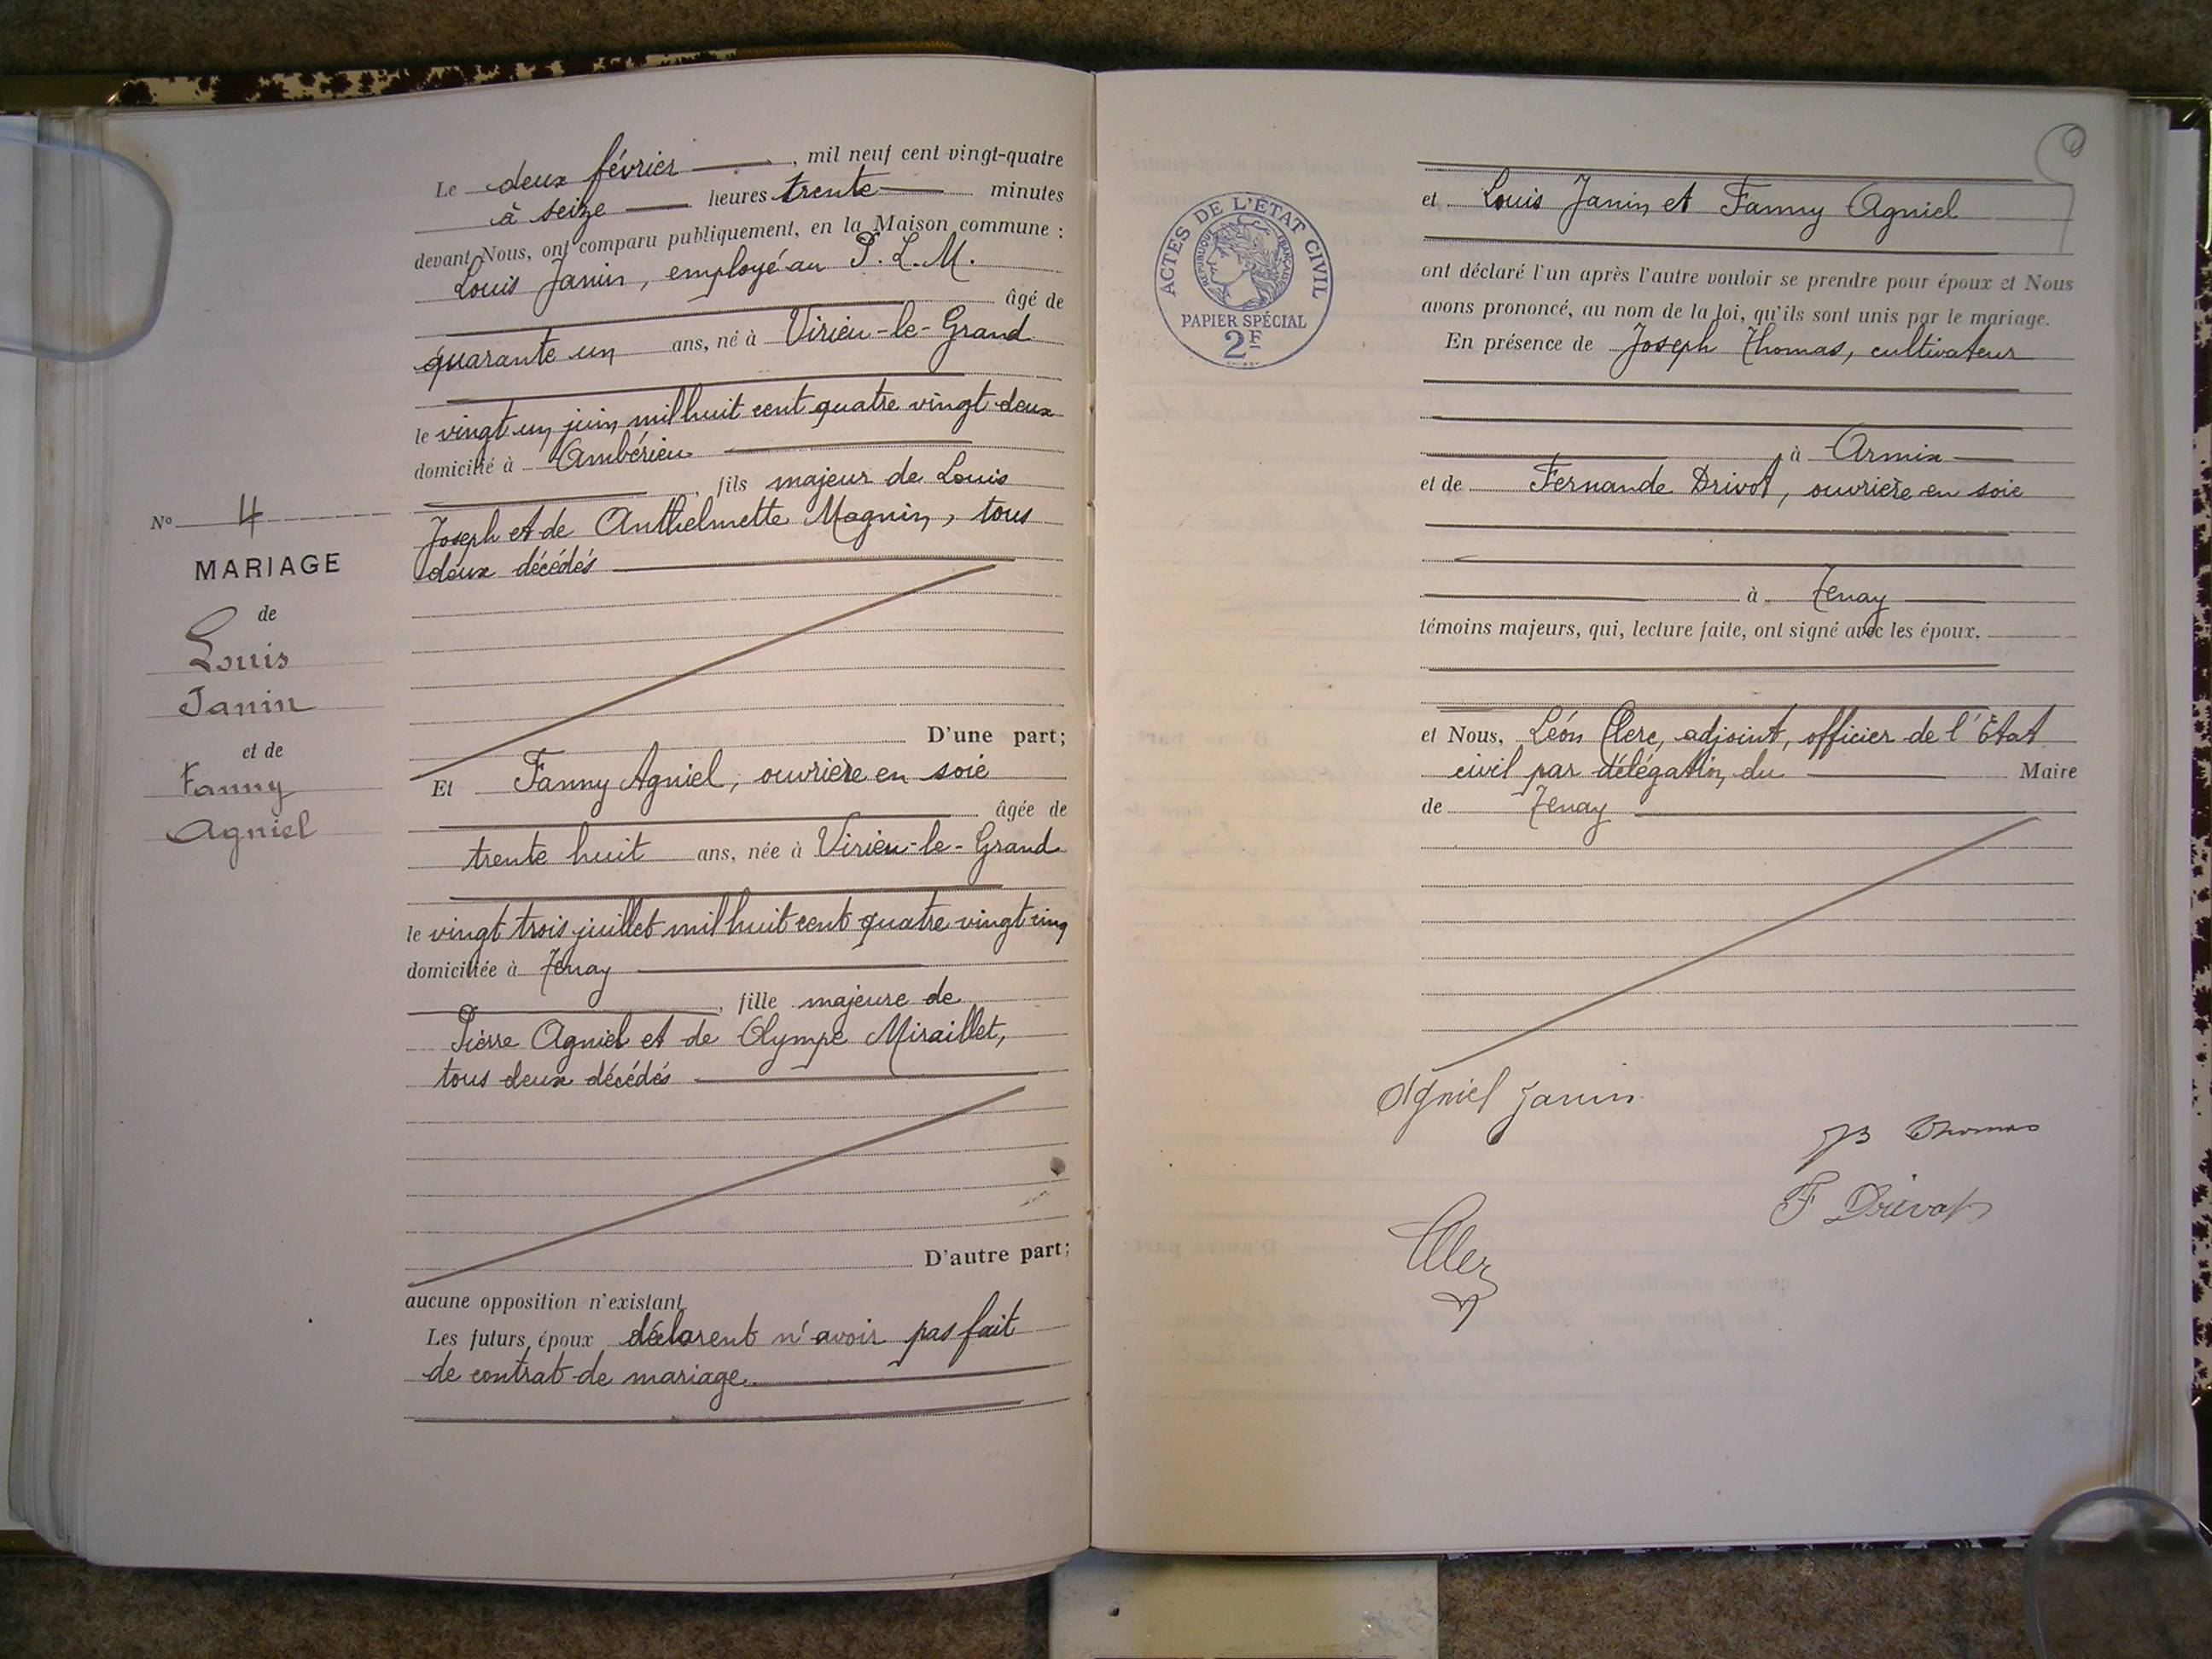 Le deux février, mil neuf cent vingt-quatre
à seize heures trente minutes
devant Nous, ont comparu publiquement, en la Maison commune :
Louis Janin, employé au P. L. M.
âgé de
quarante un ans, né à Virieu-le-Grand
le vingt un juin mil huit cent quatre vingt deux
domicilié à Ambérieu
, fils majeur de Louis
Joseph et de Anthelmette Magnin, tous
deux décédés
D'une part;
Et Fanny Agniel, ouvrière en soie
âgée de
trente huit ans, née à Virieu-le-Grand
le vingt trois juillet mil huit cent quatre vingt cinq
domiciliée à Tenay
, fille majeure de
Pierre Agniel et de Olympe Miraillet,
tous deux décédés
D'autre part;
aucune opposition n'existant
Les futurs époux déclarent n'avoir pas fait
de contrat de mariage.
N° 4
MARIAGE
de
Louis
Janin
et de
Fanny
Agniel
ACTES DE L'ÉTAT CIVIL
RÉPUBLIQUE FRANÇAISE
PAPIER SPÉCIAL
2F
et Louis Janin et Fanny Agniel
ont déclaré l'un après l'autre vouloir se prendre pour époux et Nous
avons prononcé, au nom de la loi, qu'ils sont unis par le mariage.
En présence de Joseph Thomas, cultivateur
à Armix
et de Fernande Drivot, ouvrière en soie
à Tenay
témoins majeurs, qui, lecture faite, ont signé avec les époux.
et Nous, Léon Clerc, adjoint, officier de l'Etat
civil par délégation du Maire
de Tenay
Agniel Janin
Thomas
F Drivot